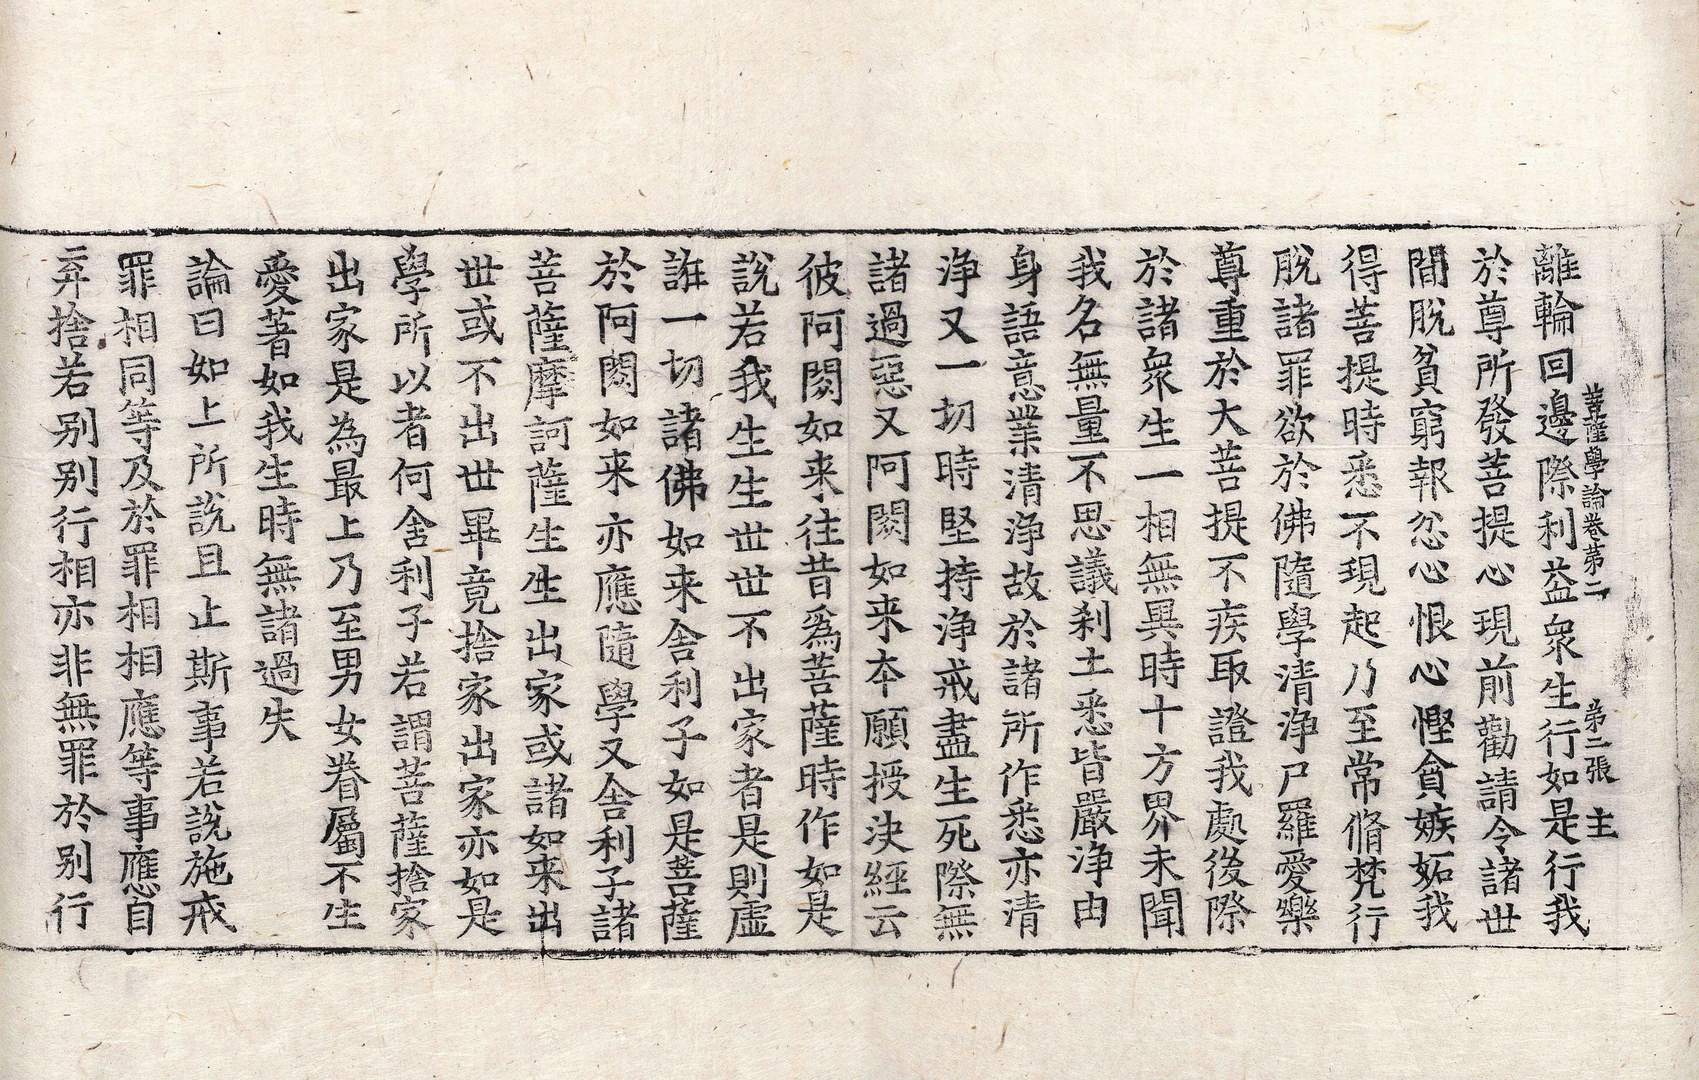 菩薩學論卷苐二 苐二張 主
離輪回邊際利益衆生行如是行我
於尊所發菩提心現前勸請令諸世
間脫貧窮報忿心恨心慳貪嫉妬我
得菩提時悉不現起乃至常脩梵行
脫諸罪欲於佛隨學清淨尸羅愛樂
尊重於大菩提不疾取證我處後際
於諸衆生一相無異時十方界未聞
我名無量不思議刹土悉皆嚴淨由
身語意業清淨故於諸所作悉亦清
淨又一切時堅持淨戒盡生死際無
諸過惡又阿閦如来本願授决經云
彼阿閦如来往昔爲菩薩時作如是
說若我生生世世不出家者是則虛
誑一切諸佛如来舍利子如是菩薩
於阿閦如来亦應隨學又舍利子諸
菩薩摩訶薩生生出家或諸如来出
世或不出世畢竟捨家出家亦如是
學所以者何舍利子若謂菩薩捨家
出家是為最上乃至男女眷屬不生
愛著如我生時無諸過失
論曰如上所說且止斯事若說施戒
罪相同等及於罪相相應等事應自
弃捨若别别行相亦非無罪於别行